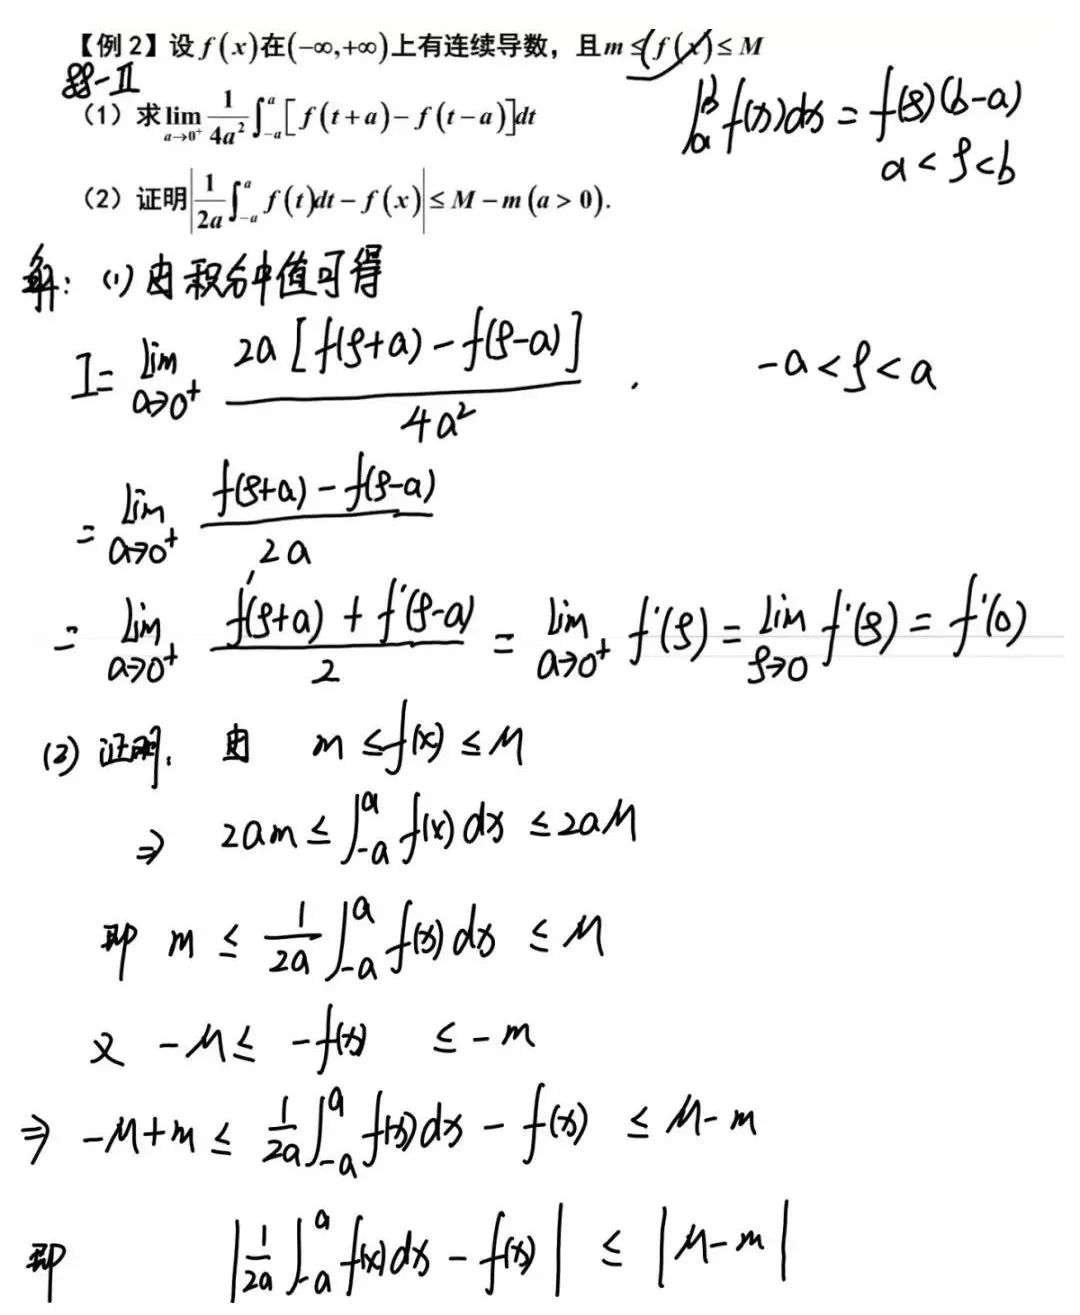 【例 2】设 f(x)在(−∞,+∞)上有连续导数，且 m ≤ f(x) ≤ M
88-Ⅱ
(1) 求 lim_{a→0⁺} 1/(4a²) ∫_{-a}^{a} [f(t+a)−f(t−a)]dt
∫_a^b f(x)dx = f(ξ)(b-a)
a < ξ < b
(2) 证明 |1/(2a) ∫_{-a}^{a} f(t)dt − f(x)| ≤ M − m (a > 0).
解: (1) 由积分中值可得
I = lim_{a→0⁺} 2a[f(ξ+a) - f(ξ-a)]/(4a²) . -a < ξ < a
= lim_{a→0⁺} (f(ξ+a) - f(ξ-a))/(2a)
= lim_{a→0⁺} (f'(ξ+a) + f'(ξ-a))/2 = lim_{a→0⁺} f'(ξ) = lim_{ξ→0} f'(ξ) = f'(0)
(2) 证明: 由 m ≤ f(x) ≤ M
⇒ 2am ≤ ∫_{-a}^{a} f(x)dx ≤ 2aM
即 m ≤ 1/(2a) ∫_{-a}^{a} f(x)dx ≤ M
又 -M ≤ -f(x) ≤ -m
⇒ -M+m ≤ 1/(2a) ∫_{-a}^{a} f(x)dx - f(x) ≤ M-m
即 |1/(2a) ∫_{-a}^{a} f(x)dx - f(x)| ≤ |M-m|